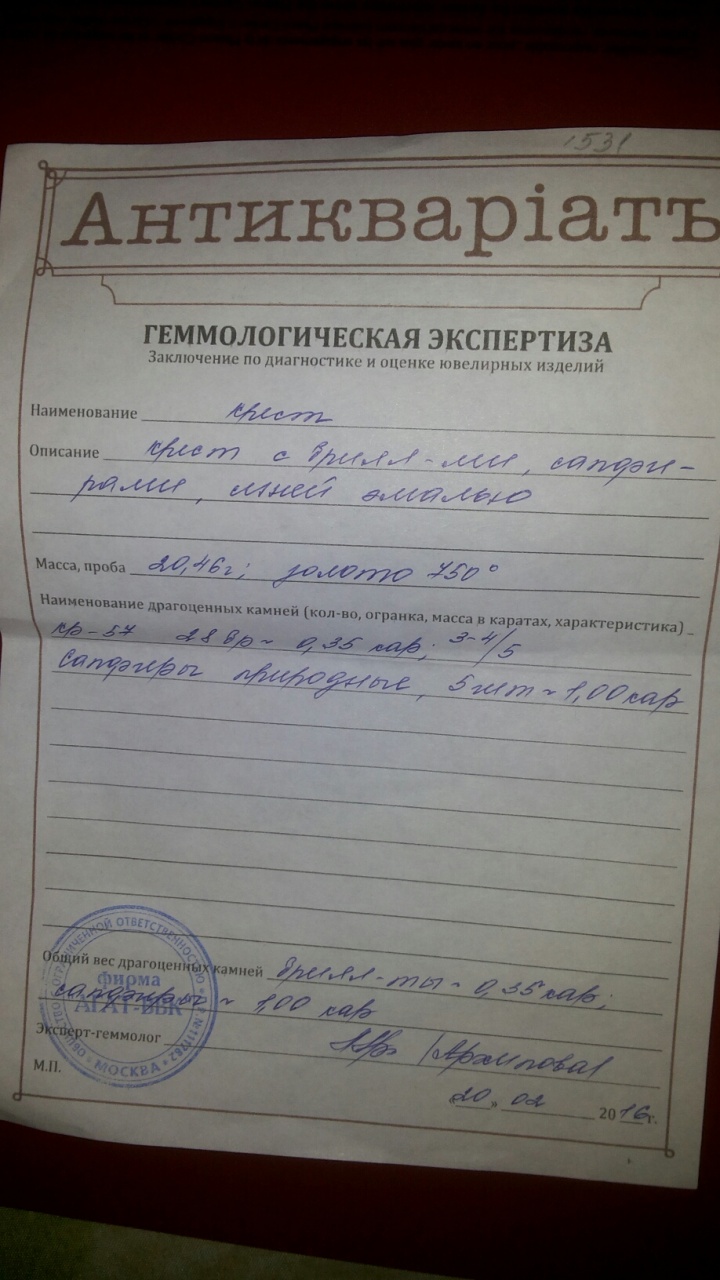 1531
Антикваріатъ
ГЕММОЛОГИЧЕСКАЯ ЭКСПЕРТИЗА
Заключение по диагностике и оценке ювелирных изделий
Наименование крест
Описание крест с брилл-ми, сапфи-
рами, синей эмалью
Масса, проба 20,46г; золото 750°
Наименование драгоценных камней (кол-во, огранка, масса в каратах, характеристика)
кр-57 28 бр ~ 0,35 кар; 3-4/5
Сапфиры природные, 5 шт ~ 1,00 кар
Общий вес драгоценных камней брилл-ты ~ 0,35 кар;
сапфиры ~ 1,00 кар
Эксперт-геммолог /Архипова/
М.П.
20 02 2016г.
ОБЩЕСТВО С ОГРАНИЧЕННОЙ ОТВЕТСТВЕННОСТЬЮ
фирма
АГАТ-ВВК
МОСКВА